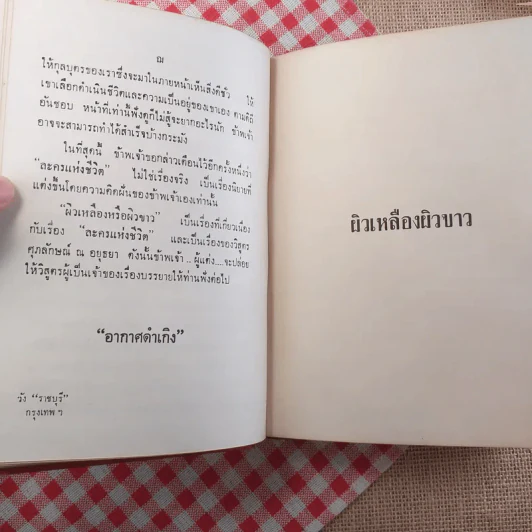 ฌ
ให้กุลบุตรของเราซึ่งจะมาในภายหน้าเห็นสิ่งดีชั่ว ให้
เขาเลือกดำเนินชีวิตและความเป็นอยู่ของเขาเอง ตามคติ
อันชอบ หน้าที่เท่านี้ฟังดูก็ไม่สู้จะยากอะไรนัก ข้าพเจ้า
อาจจะสามารถทำได้สำเร็จบ้างกระมัง
ในที่สุดนี้ ข้าพเจ้าขอกล่าวเตือนไว้อีกครั้งหนึ่งว่า
“ละครแห่งชีวิต” ไม่ใช่เรื่องจริง เป็นเรื่องนิยายที่
แต่งขึ้นโดยความคิดฝันของข้าพเจ้าเองเท่านั้น
“ผิวเหลืองหรือผิวขาว” เป็นเรื่องที่เกี่ยวเนื่อง
กับเรื่อง “ละครแห่งชีวิต” และเป็นเรื่องของวิสูตร
ศุภลักษณ์ ณ อยุธยา ดังนั้นข้าพเจ้า .. ผู้แต่ง....จะปล่อย
ให้วิสูตรผู้เป็นเจ้าของเรื่องบรรยายให้ท่านฟังต่อไป
“อากาศดำเกิง”
วัง “ราชบุรี”
กรุงเทพ ฯ
ผิวเหลืองผิวขาว